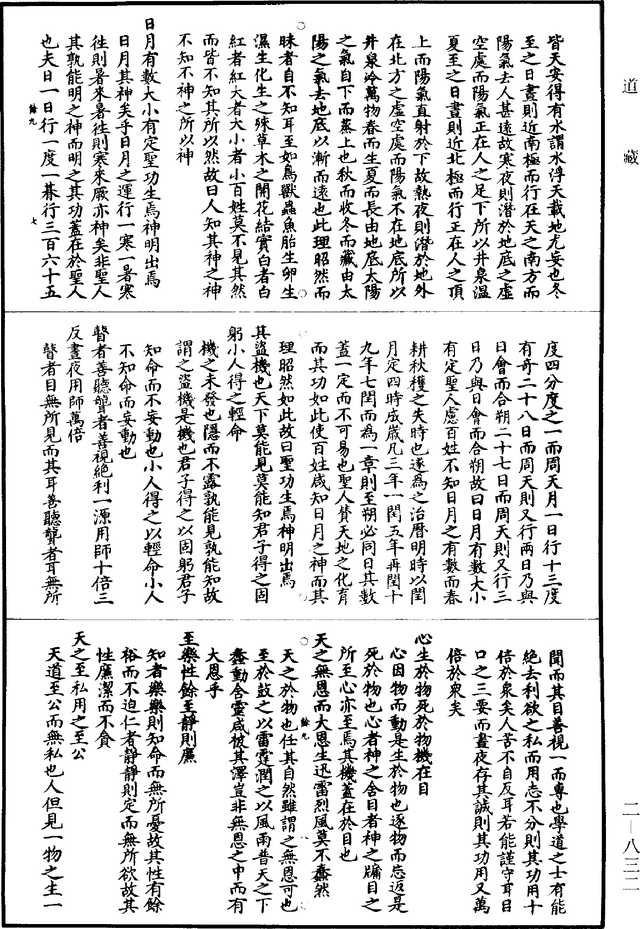 道藏
皆天安得有水謂水浮天載地尤妄也冬
至之日晝則近南極而行在天之南方而
陽氣去人甚遠故寒夜則潛於地底之虛
空處而陽氣正在人之足下所以井泉溫
夏至之日晝則近北極而行正在人之頂
上而陽氣直射於下故熱夜則潛於地外
在北方之虛空處而陽氣不在地底所以
井泉冷萬物春而生夏而長由地底太陽
之氣自下而蒸上也秋而收冬而藏由太
陽之氣去地底以漸而遠也此理昭然而
昧者自不知耳至如鳥獸蟲魚胎生卵生
濕生化生之殊草木之開花結實白者白
紅者紅大者大小者小百姓莫不見其然
而皆不知其所以然故曰人知其神之神
不知不神之所以神
日月有數大小有定聖功生焉神明出焉
日月其神矣乎日月之運行一寒一暑寒
往則暑來暑往則寒來厥亦神矣非聖人
其孰能明之神而明之其功蓋在於聖人
也夫日一日行一度一朞行三百六十五
餘九 七
度四分度之一而周天月一日行十三度
有奇二十八日而周天則又行兩日乃與
日會而合朔二十七日而周天則又行三
日乃與日會而合朔故曰日月有數大小
有定聖人慮百姓不知日月之有數而春
耕秋穫之失時也遂為之治曆明時以閏
月定四時成歲凡三年一閏五年再閏十
九年七閏而為一章則至朔必同日其數
蓋一定而不可易也聖人贊天地之化育
而其功如此使百姓咸知日月之神而其
理昭然如此故曰聖功生焉神明出焉
其盜機也天下莫能見莫能知君子得之固
躬小人得之輕命
機之未發也隱而不露孰能見孰能知故
謂之盜機是機也君子得之以固躬君子
知命而不妄動也小人得之以輕命小人
不知命而妄動也
瞽者善聽聾者善視絕利一源用師十倍三
反晝夜用師萬倍
瞽者目無所見而其耳善聽聾者耳無所
聞而其目善視一而專也學道之士有能
絕去利欲之私而用志不分則其功用十
倍於衆矣人苦不自反耳若能謹守耳目
口之三要而晝夜存其誠則其功用又萬
倍於衆矣
心生於物死於物機在目
心因物而動是生於物也逐物而忘返是
死於物也心者神之舍目者神之牖目之
所至心亦至焉其機蓋在於目也
天之無恩而大恩生迅雷烈風莫不蠢然
餘九
天之於物也任其自然雖謂之無恩可也
至於鼓之以雷霆潤之以風雨普天之下
蠢動含靈咸被其澤豈非無恩之中而有
大恩乎
至樂性餘至靜則廉
知者樂樂則知命而無所憂故其性有餘
裕而不迫仁者靜靜則定而無所欲故其
性廉潔而不貪
天之至私用之至公
天道至公而無私也人但見一物之生一
二－八三二